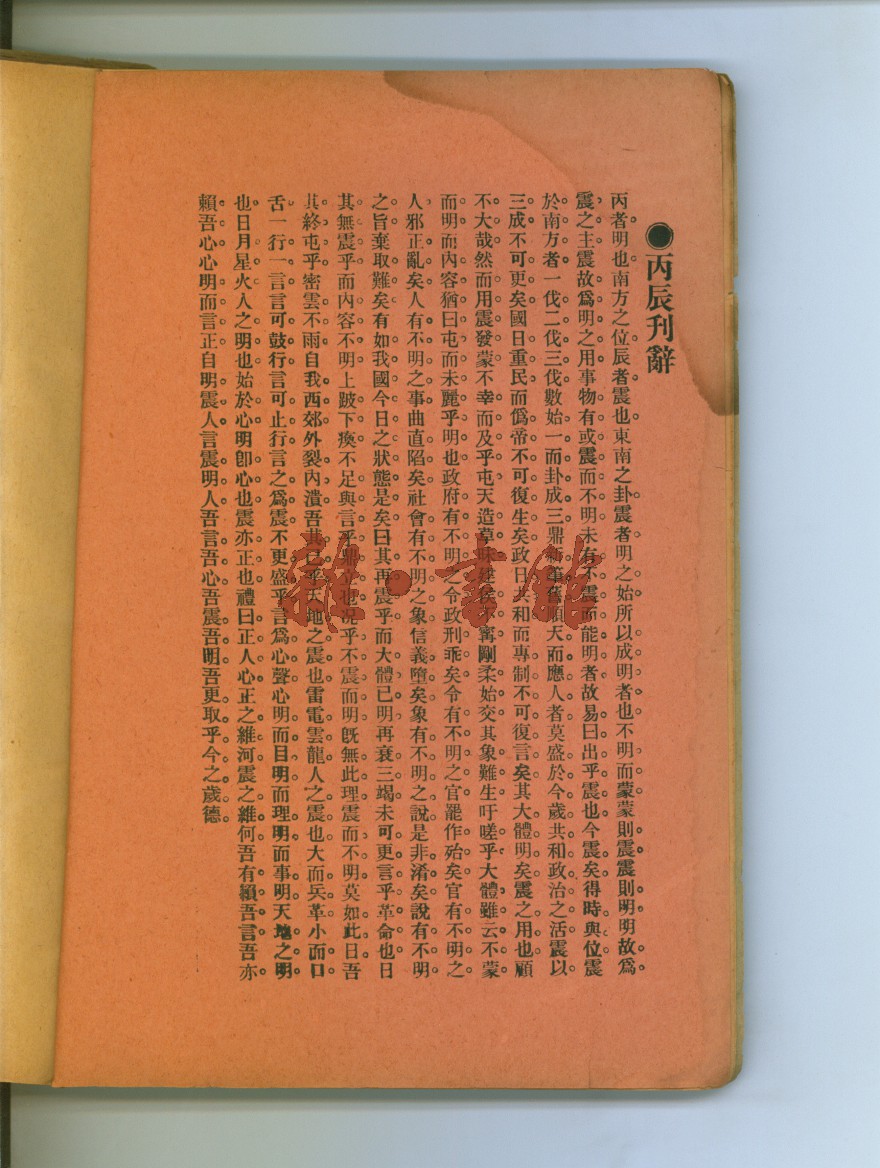 ●丙辰刋辭
丙者明也南方之位辰者震也東南之卦震者明之始所以成明者也不明而蒙蒙則震震則明明故爲
震之主震故爲明之用事物有或震而不明未有不震而能明者故易曰出乎震也今震矣得時與位震
於南方者一伐二伐三伐數始一而卦成三鼎新革舊順天而應人者莫盛於今歲共和政治之活震以
三成不可更矣國日重民而僞帝不可復生矣政日共和而專制不可復言矣其大體明矣震之用也顧
不大哉然而用震發蒙不幸而及乎屯天造草昧建侯不寗剛柔始交其象難生吁嗟乎大體雖云不蒙
而明而內容猶曰屯而未麗乎明也政府有不明之令政刑乖矣令有不明之官罷作殆矣官有不明之
人邪正亂矣人有不明之事曲直陷矣社會有不明之象信義墮矣象有不明之說是非淆矣說有不明
之旨棄取難矣有如我國今日之狀態是矣曰其再震乎而大體已明再衰三竭未可更言乎革命也曰
其無震乎而內容不明上跛下瘓不足與言乎鼎立也况乎不震而明旣無此理震而不明莫如此日吾
其終屯乎密雲不雨自我西郊外裂內潰吾其已乎天地之震也雷電雲龍人之震也大而兵革小而口
舌一行一言言可鼓行言可止行言之爲震不更盛乎言爲心聲心明而目明而理明而事明天地之明
也日月星火人之明也始於心明卽心也震亦正也禮曰正人心正之維河震之維何吾有賴吾言吾亦
賴吾心心明而言正自明震人言震明人吾言吾心吾震吾明吾更取乎今之歲德
雜·書館